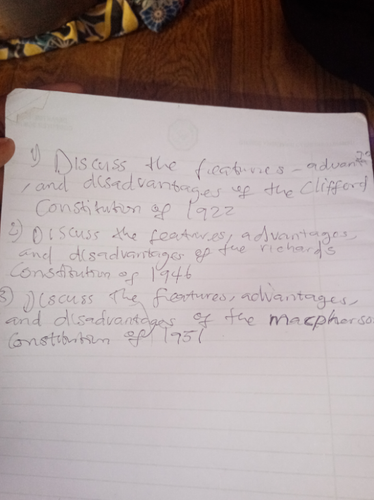 1) Discuss the features - advant
, and disadvantages of the Clifford
Constitution of 1922
2) Discuss the features, advantages,
and disadvantages of the richards
Constitution of 1946
3) Discuss the features, advantages,
and disadvantages of the macpherso
Constitution of 1951